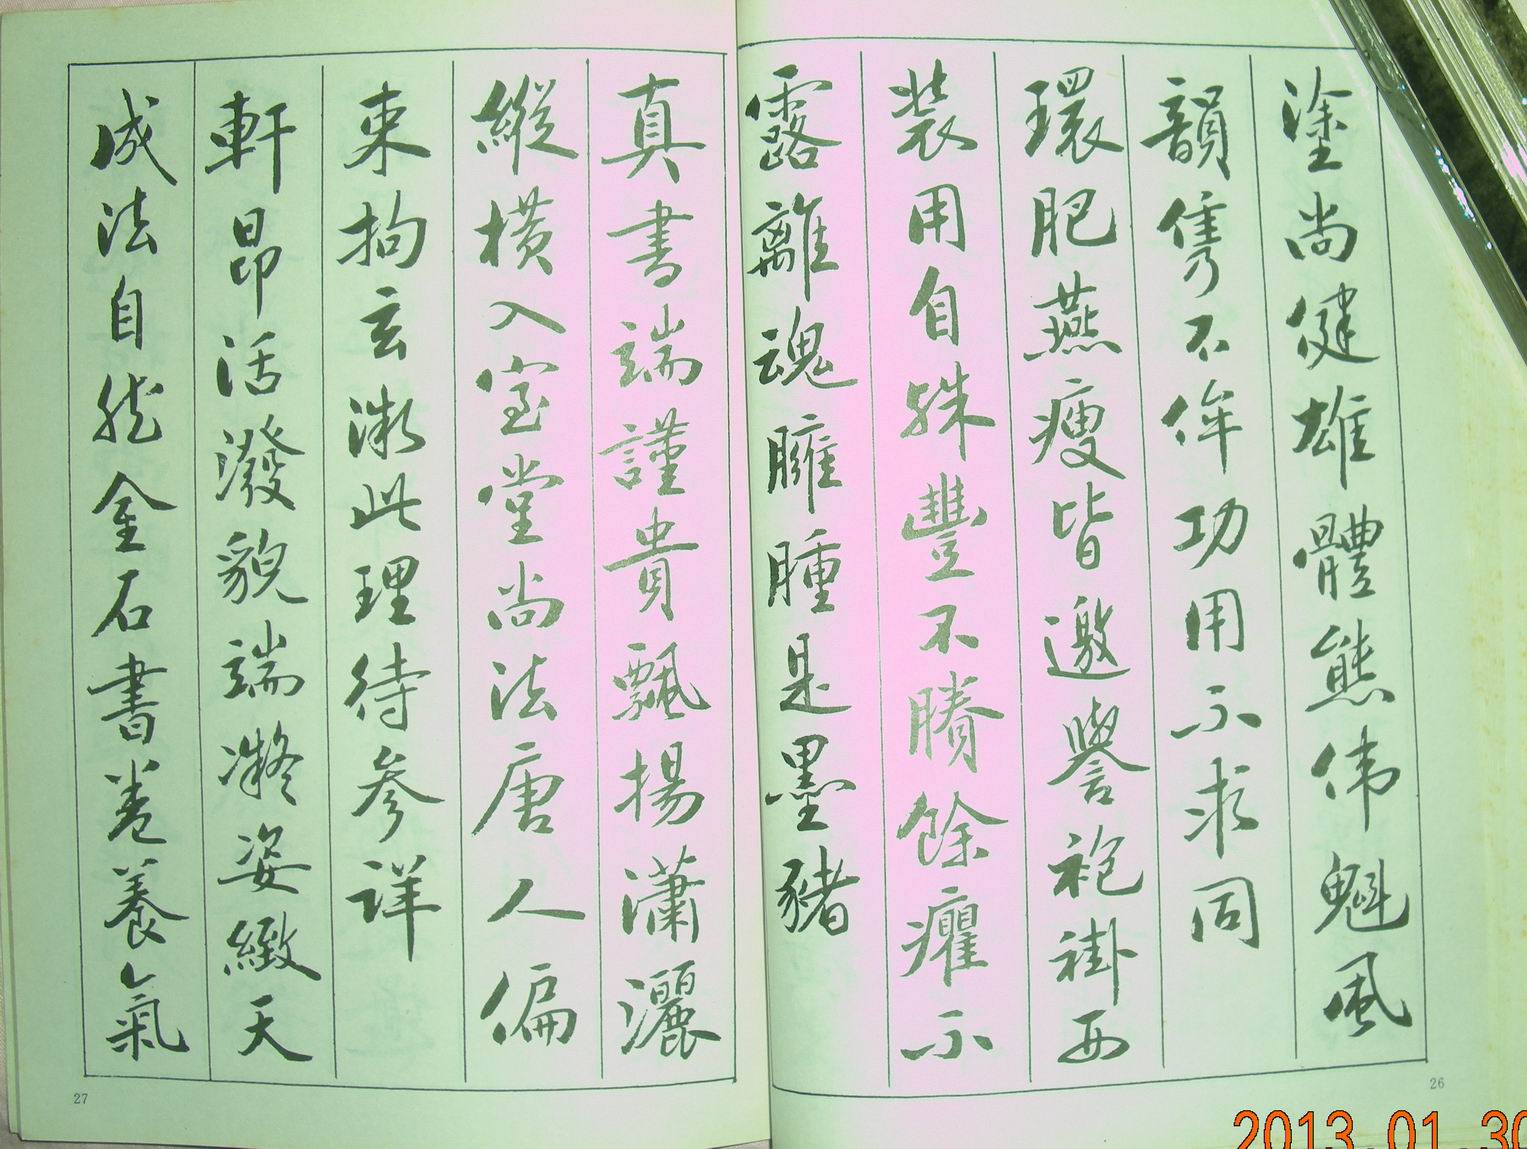 塗尚健雄體熊伟魁風
韻雋不侔功用不求同
環肥燕瘦皆邀譽袍褂西
裝用自殊豐不賸餘癯不
露離魂臃腫是墨豬
26
真書端謹貴飄揚瀟灑
縱横入室堂尚法唐人偏
束拘玄漱此理待參详
軒昂活潑貌端凝姿緻天
成法自然金石書卷養氣
27
2013.01.30